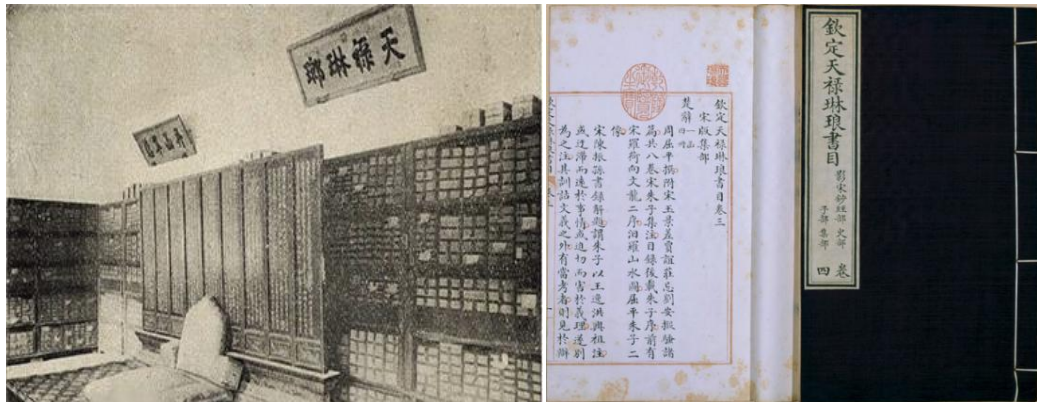 天祿琳瑯
欽定天禄琳琅書目卷三
宋版集部
楚辭
周屈平撰附宋玉景差賈誼莊忌劉安擬騷諸
篇共八卷宋朱子集注目錄後載朱子序前有
宋羅荷向文龍二序汨羅山水圖屈平朱子二
像
宋陳振孫書錄解題謂朱子以王逸洪興祖注
或迂滯而遠於事情或迫切而害於義理遂別
為之注其訓詁文義之外有當考者則見於辯
欽定天禄琳琅書目
影宋鈔經部 史部
子部 集部
卷四